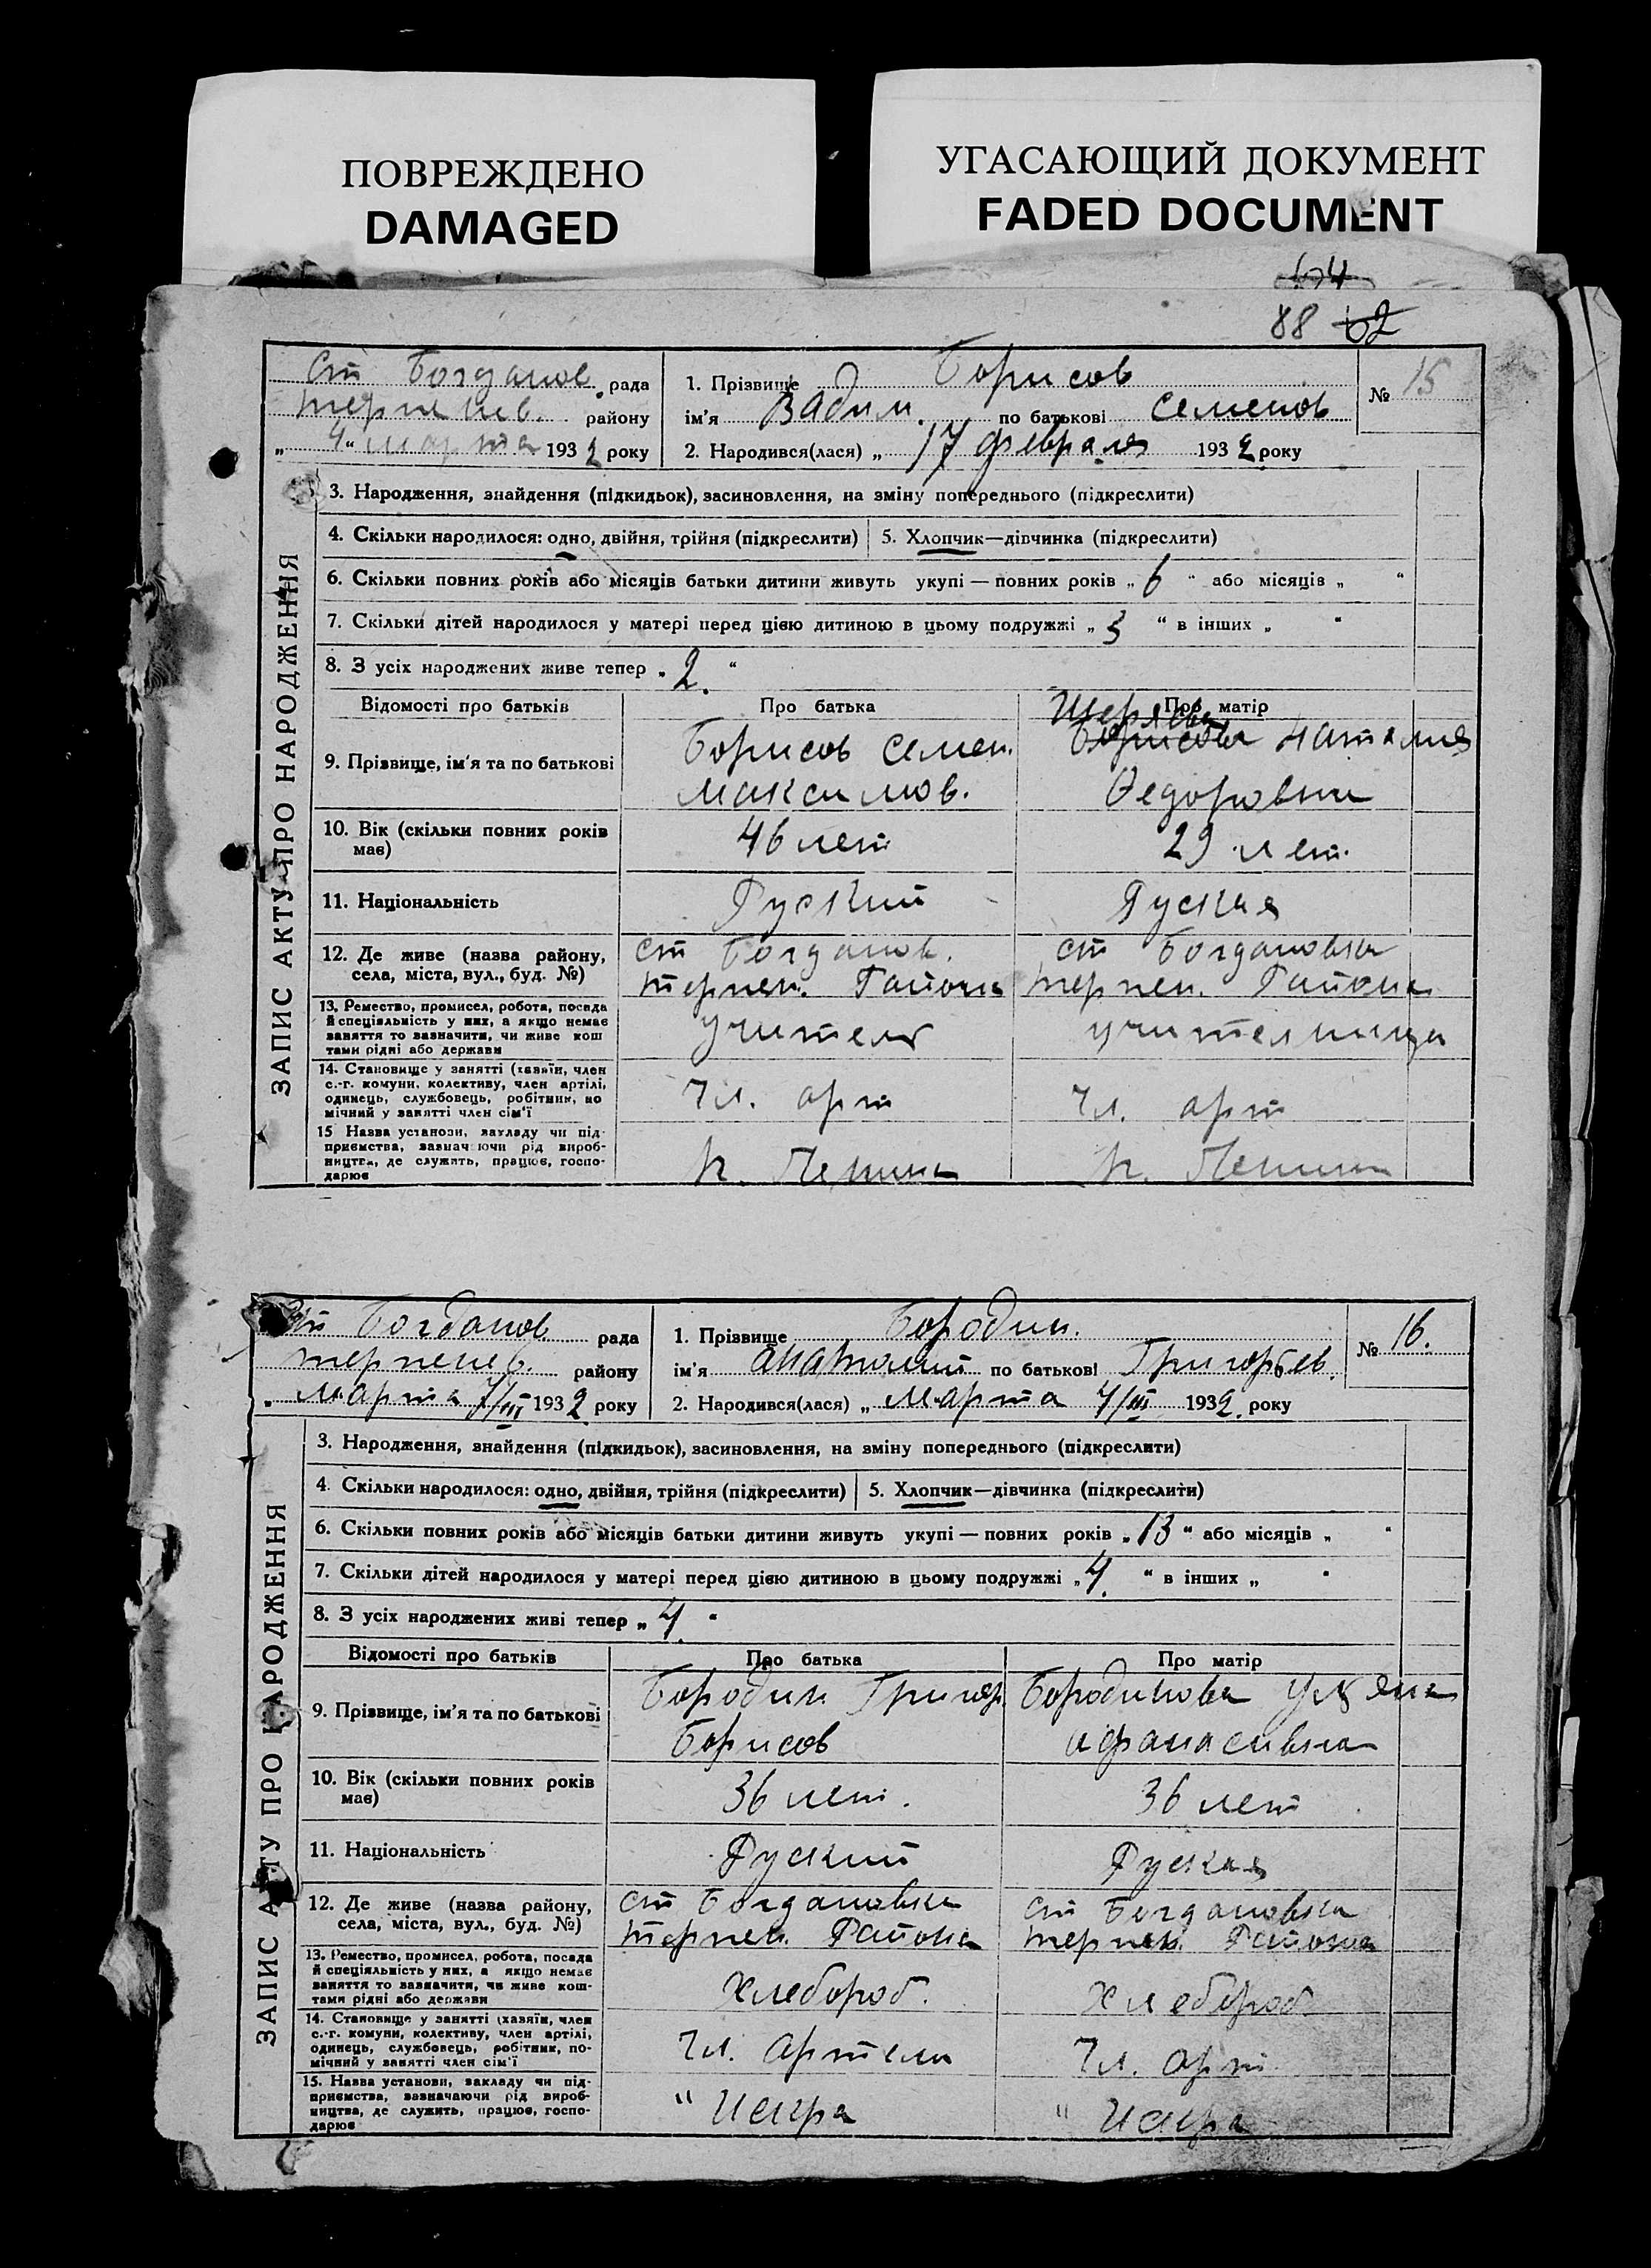 ПОВРЕЖДЕНО
DAMAGED
УГАСАЮЩИЙ ДОКУМЕНТ
FADED DOCUMENT
88 62
ст Богданов. рада
терпенев. району
„ 4 “ марта 1932 року
1. Прізвище Борисов
ім'я Вадим по батькові Семенов
2. Народився(лася) „ 17 февраля 1932 року
№ 15
ЗАПИС АКТУ ПРО НАРОДЖЕННЯ
3. Народження, знайдення (підкидьок), засиновлення, на зміну попереднього (підкреслити)
4. Скільки народилося: одно, двійня, трійня (підкреслити) 5. Хлопчик—дівчинка (підкреслити)
6. Скільки повних років або місяців батьки дитини живуть укупі — повних років „ 6 “ або місяців „ “
7. Скільки дітей народилося у матері перед цією дитиною в цьому подружжі „ 3 “ в інших „ “
8. З усіх народжених живе тепер „ 2. “
Відомості про батьків Про батька Про матір
9. Прізвище, ім'я та по батькові
Борисов Семен.
Максимов.
Борисова Наталия
Федоровна
10. Вік (скільки повних років
має)
46 лет
29 лет.
11. Національність Руский Руская
12. Де живе (назва району,
села, міста, вул., буд. №)
ст Богданов.
терпен. Района
ст Богдановка
терпен. Района
13. Ремество, промисел, робота, посада
й спеціяльність у них, а якщо немає
заняття то зазначити, чи живе кош
тами рідні або держави
учитель
учителница
14. Становище у занятті (хазяїн, член
с.-г. комуни, колективу, член артілі,
одинець, службовець, робітник, по
мічний у занятті член сім'ї
Чл. арт
Чл. арт
15 Назва установи, закладу чи під-
приємства, зазначаючи рід вироб-
ництва, де служить, працює, госпо-
дарює
к. Ленина
к. Ленина
ст Богданов рада
терпенев. району
„ Марта 7/III 1932. року
1. Прізвище Бородин.
ім'я Анатолий по батькові Григорьев.
2. Народився(лася) „ Марта 4/III 1932. року
№ 16.
ЗАПИС АКТУ ПРО НАРОДЖЕННЯ
3. Народження, знайдення (підкидьок), засиновлення, на зміну попереднього (підкреслити)
4. Скільки народилося: одно, двійня, трійня (підкреслити) 5. Хлопчик—дівчинка (підкреслити)
6. Скільки повних років або місяців батьки дитини живуть укупі — повних років „ 13 “ або місяців „ “
7. Скільки дітей народилося у матері перед цією дитиною в цьому подружжі „ 4. “ в інших „ “
8. З усіх народжених живі тепер „ 4. “
Відомості про батьків Про батька Про матір
9. Прізвище, ім'я та по батькові
Бородин Григор.
Борисов
Бородинова
афанасивна
10. Вік (скільки повних років
має)
36 лет.
36 лет
11. Національність Руский Руская
12. Де живе (назва району,
села, міста, вул., буд. №)
ст Богдановка
терпен. Района
ст Богдановка
терпен. Района
13. Ремество, промисел, робота, посада
й спеціяльність у них, а якщо немає
заняття то зазначити, чи живе кош-
тами рідні або держави
Хлебороб.
Хлебороб.
14. Становище у занятті (хазяїн, член
с.-г. комуни, колективу, член артілі,
одинець, службовець, робітник, по-
мічний у занятті член сім'ї
Чл. артели
Чл. арт.
15. Назва установи, закладу чи під-
приємства, зазначаючи рід вироб-
ництва, де служить, працює, госпо-
дарює
" Искра
" Искра